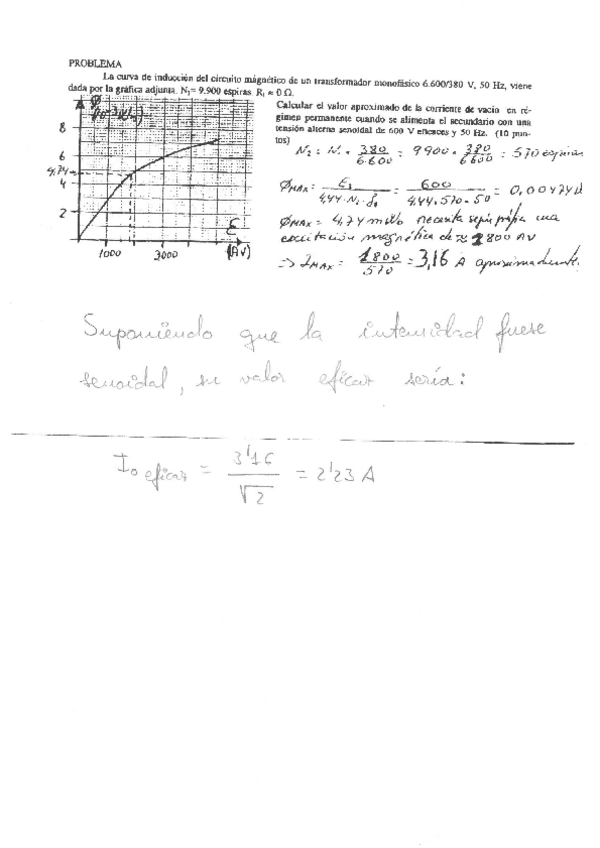 PROBLEMA
La curva de inducción del circuito mágnético de un transformador monofásico 6.600/380 V, 50 Hz, viene
dada por la gráfica adjunta. N₁= 9.900 espiras. R₁ ≈ 0 Ω.
Calcular el valor aproximado de la corriente de vacío en ré-
gimen permanente cuando se alimenta el secundario con una
tensión alterna senoidal de 600 V eficaces y 50 Hz. (10 pun-
tos)
8
6
4,74
4
2
1000
3000
ε
(AV)
N₂ = N₁ · 380/6.600 = 9900 · 380/6600 = 570 espiras
Φ MAX = E₁/4,44·N₁·f₀ = 600/4,44.570.50 = 0,00474
Φ MAX = 4,74 mWb necesita según gráfica una
excitación magnética de ≈ 1800 AV
=> I MAX = 1800/570 = 3,16 A aproximadamente.
Suponiendo que la intensidad fuese
senoidal, su valor eficaz sería:
I₀ eficaz = 3'16/√2 = 2'23 A